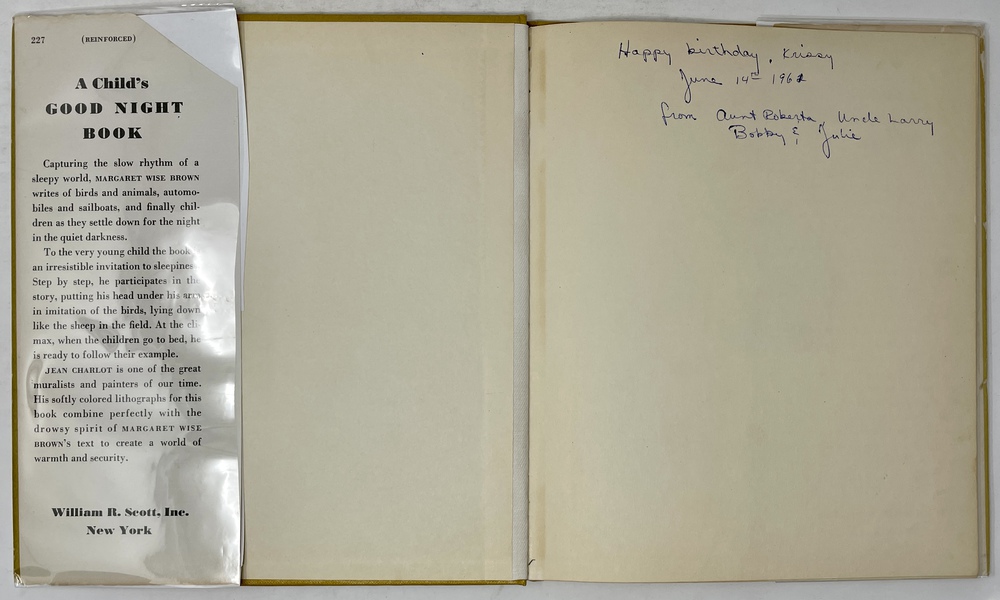 227 (REINFORCED)
A Child's
GOOD NIGHT
BOOK
Capturing the slow rhythm of a
sleepy world, MARGARET WISE BROWN
writes of birds and animals, automo-
biles and sailboats, and finally chil-
dren as they settle down for the night
in the quiet darkness.
To the very young child the book
an irresistible invitation to sleepines
Step by step, he participates in the
story, putting his head under his arm
in imitation of the birds, lying down
like the sheep in the field. At the cli-
max, when the children go to bed, he
is ready to follow their example.
JEAN CHARLOT is one of the great
muralists and painters of our time.
His softly colored lithographs for this
book combine perfectly with the
drowsy spirit of MARGARET WISE
BROWN'S text to create a world of
warmth and security.
William R. Scott, Inc.
New York
Happy birthday, Krissy
June 14th
from Aunt Roberta, Uncle Larry
Bobby & Julie